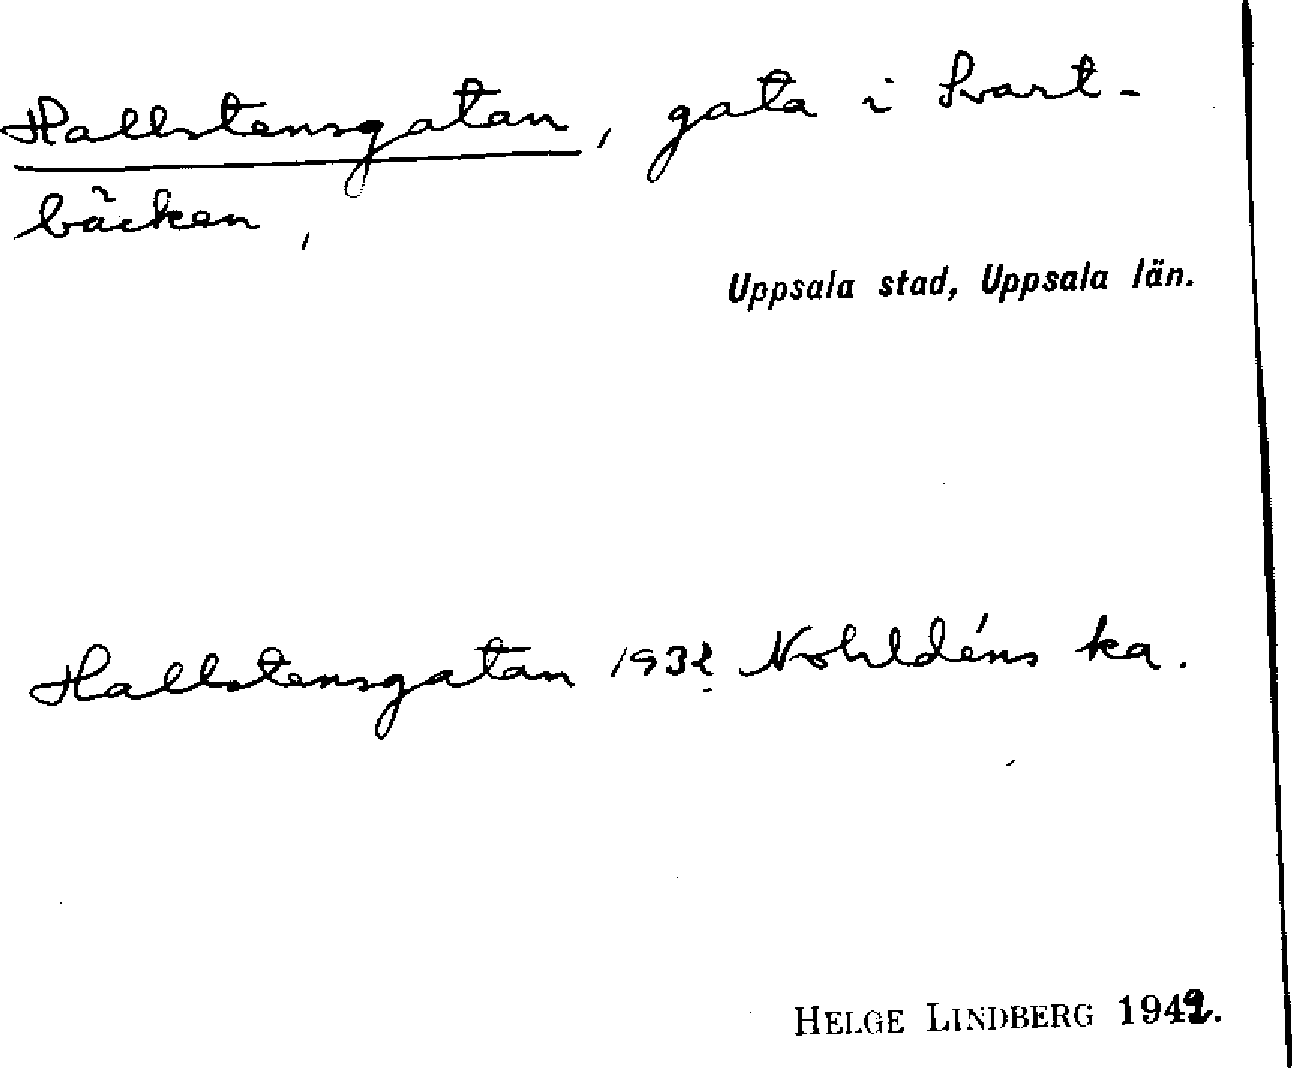 Hallstensgatan, gata i Svart-
bäcken,
Uppsala stad, Uppsala län.
Hallstensgatan 1932 Nohldéns ka.
HELGE LINDBERG 1942.